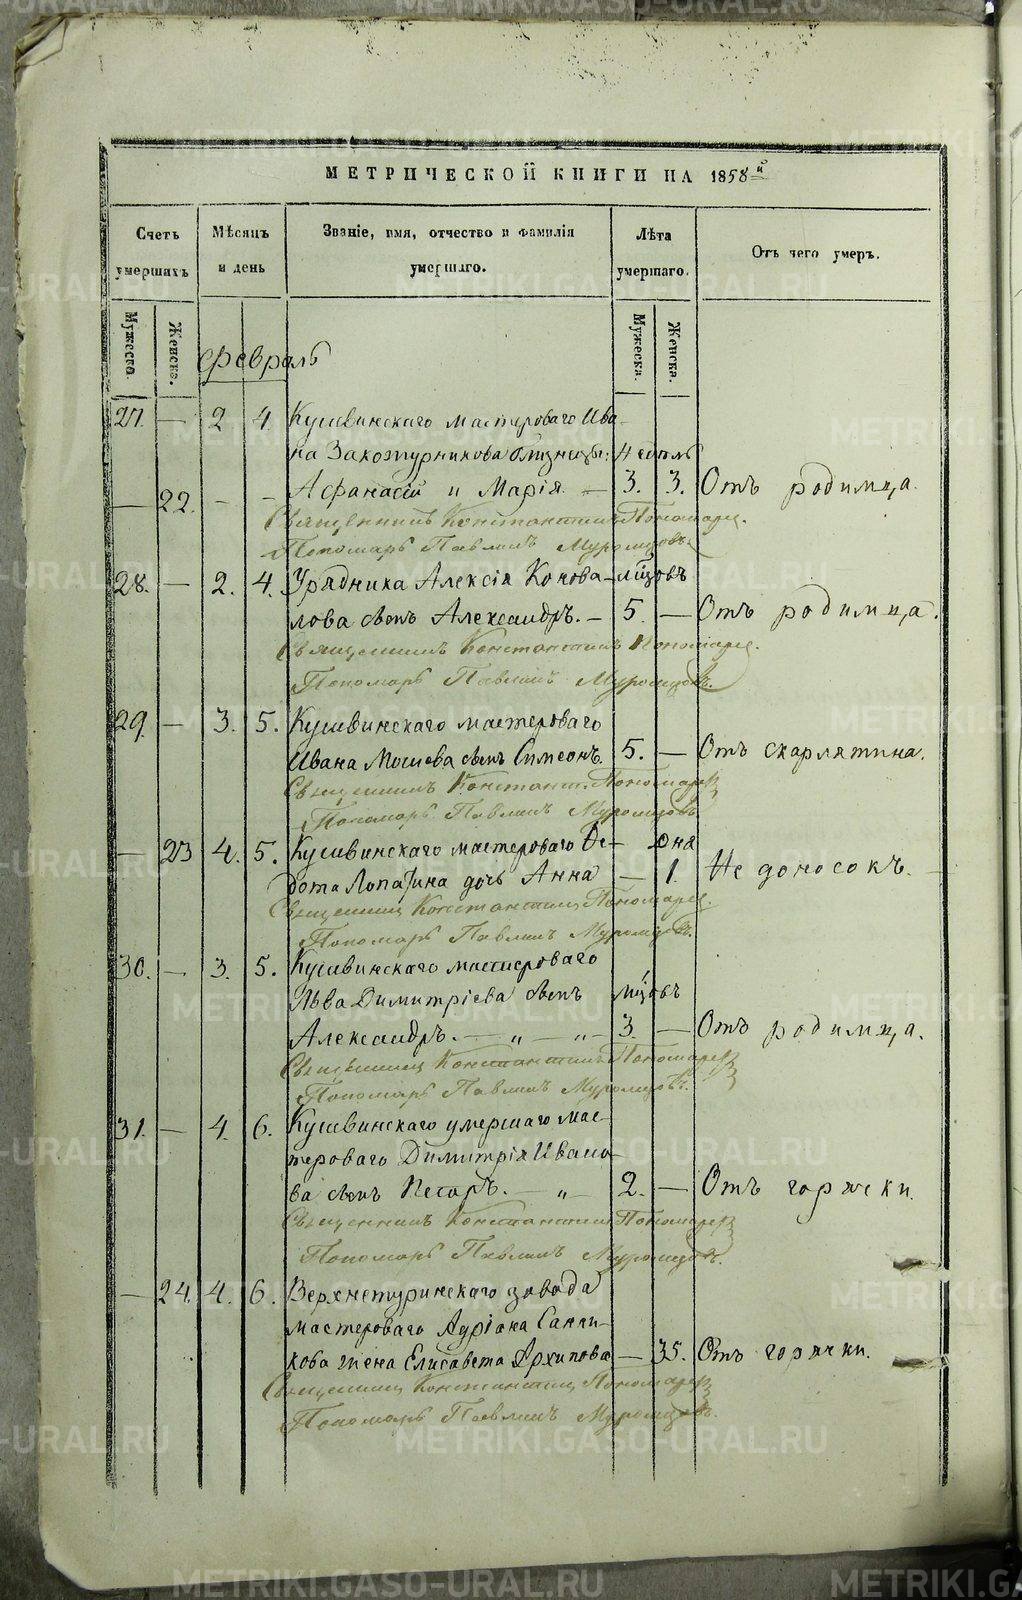 МЕТРИЧЕСКОЙ КНИГИ НА 1858й
Счетъ умершихъ
Мѣсяцъ и день
Званіе, имя, отчество и фамилія умершаго.
Лѣта умершаго.
Отъ чего умеръ.
Мужеска. Женска.
Мужеска. Женска.
Февраль
27. — 2 4. Кушвинскаго мастероваго Ива-
на Закожурникова близнецы: 4 недѣль
— 22. - - Афанасій и Марія — 3. 3. Отъ родимца.
Священникъ Константинъ Пономарев.
Пономарь Павлинъ Муромцовъ.
28. — 2. 4. Урядника Алексія Конова- мцовъ
лова сынъ Александръ. — 5 — Отъ родимца.
Священникъ Константинъ Пономарев.
Пономарь Павлинъ Муромцовъ.
29. — 3. 5. Кушвинскаго мастероваго
Ивана Мошева сынъ Симеонъ. 5. — Отъ скарлятина.
Священникъ Констант. Пономарев
Пономарь Павлинъ Муромцовъ
— 23 4. 5. Кушвинскаго мастероваго Ѳе- дня
дота Лопатина дочь Анна — 1. Не доносокъ.
Священник Константин Пономарев.
Пономарь Павлинъ Муромцовъ.
30. — 3. 5. Кушвинскаго мастероваго
Льва Димитріева сынъ мцовъ
Александръ. — „ — „ — 3. — Отъ родимца.
Священник Константинъ Пономарев
Пономарь Павлинъ Муромцовъ.
31. — 4. 6. Кушвинскаго умершаго мас-
тероваго Димитрія Ивано-
ва сынъ Петръ. — „ — 2. — Отъ горячки.
Священникъ Константинъ Пономарев
Пономарь Павлинъ Муромцовъ.
— 24. 4. 6. Верхнетуринскаго завода
мастероваго Адріана Санни-
кова жена Елисавета Архипова — 35. Отъ горячки.
Священник Константин Пономарев
Пономарь Павлинъ Муромцовъ.
METRIKI.GASO-URAL.RU